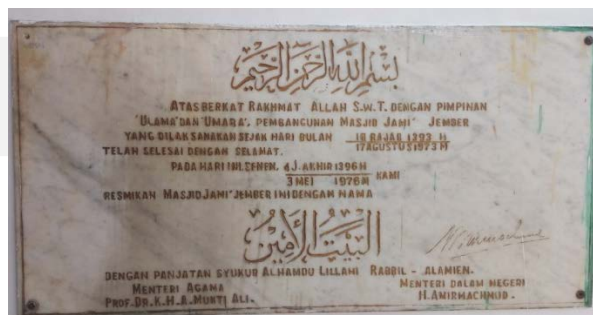 بسم الله الرحمن الرحيم
ATAS BERKAT RAKHMAT ALLAH S.W.T. DENGAN PIMPINAN
'ULAMA' DAN 'UMARA', PEMBANGUNAN MASJID JAMI' JEMBER
YANG DILAKSANAKAN SEJAK HARI BULAN 18 RAJAB 1393 H
17 AGUSTUS 1973 M
TELAH SELESAI DENGAN SELAMAT.
PADA HARI INI, SENEN, 4 J. AKHIR 1396 H
3 MEI 1976 M KAMI
RESMIKAN MASJID JAMI' JEMBER INI DENGAN NAMA
البيت الأمين
DENGAN PANJATAN SYUKUR ALHAMDU LILLAHI RABBIL - ALAMIEN.
MENTERI AGAMA MENTERI DALAM NEGERI
PROF. DR. K.H.A. MUKTI ALI. H. AMIRMACHMUD.